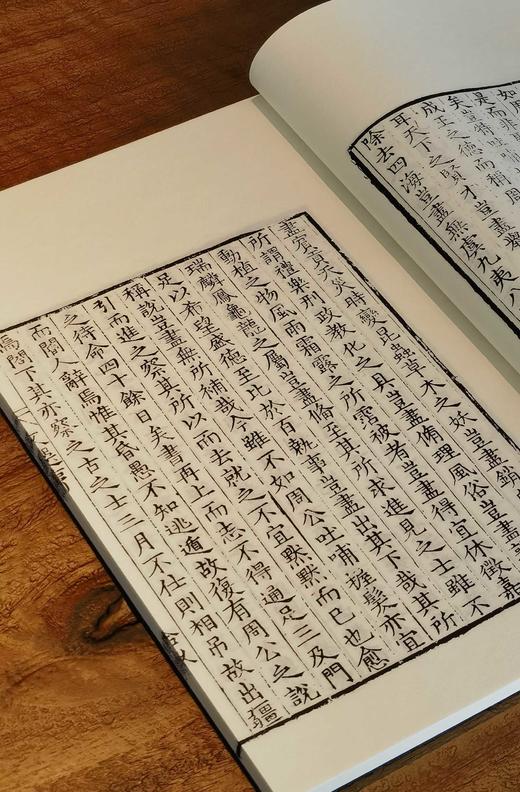 如周
矣豈
成王之德而稱周
耳天下之賢才豈盡舉
除去四海豈盡無虞九夷八
盡賓貢天災時變昆蟲草木之妖豈盡銷
所謂禮樂刑政教化之具豈盡脩理風俗豈盡
動植之物風雨霜露之所霑被者豈盡得宜休徵嘉
瑞麟鳳龜龍之屬豈盡備至其所求進見之士雖不
足以希望盛德至比於百執事豈盡出其下哉其所
稱說豈盡無所補哉今雖不如周公吐哺握髮亦宜
引而進之察其所以而去就之不宜默默而已也愈
之待命四十餘日矣書再上而志不得通足三及門
而閽人辭焉惟其昏愚不知逃遁故復有周公之說
閤下其亦察之古之士三月不仕則相弔故出疆